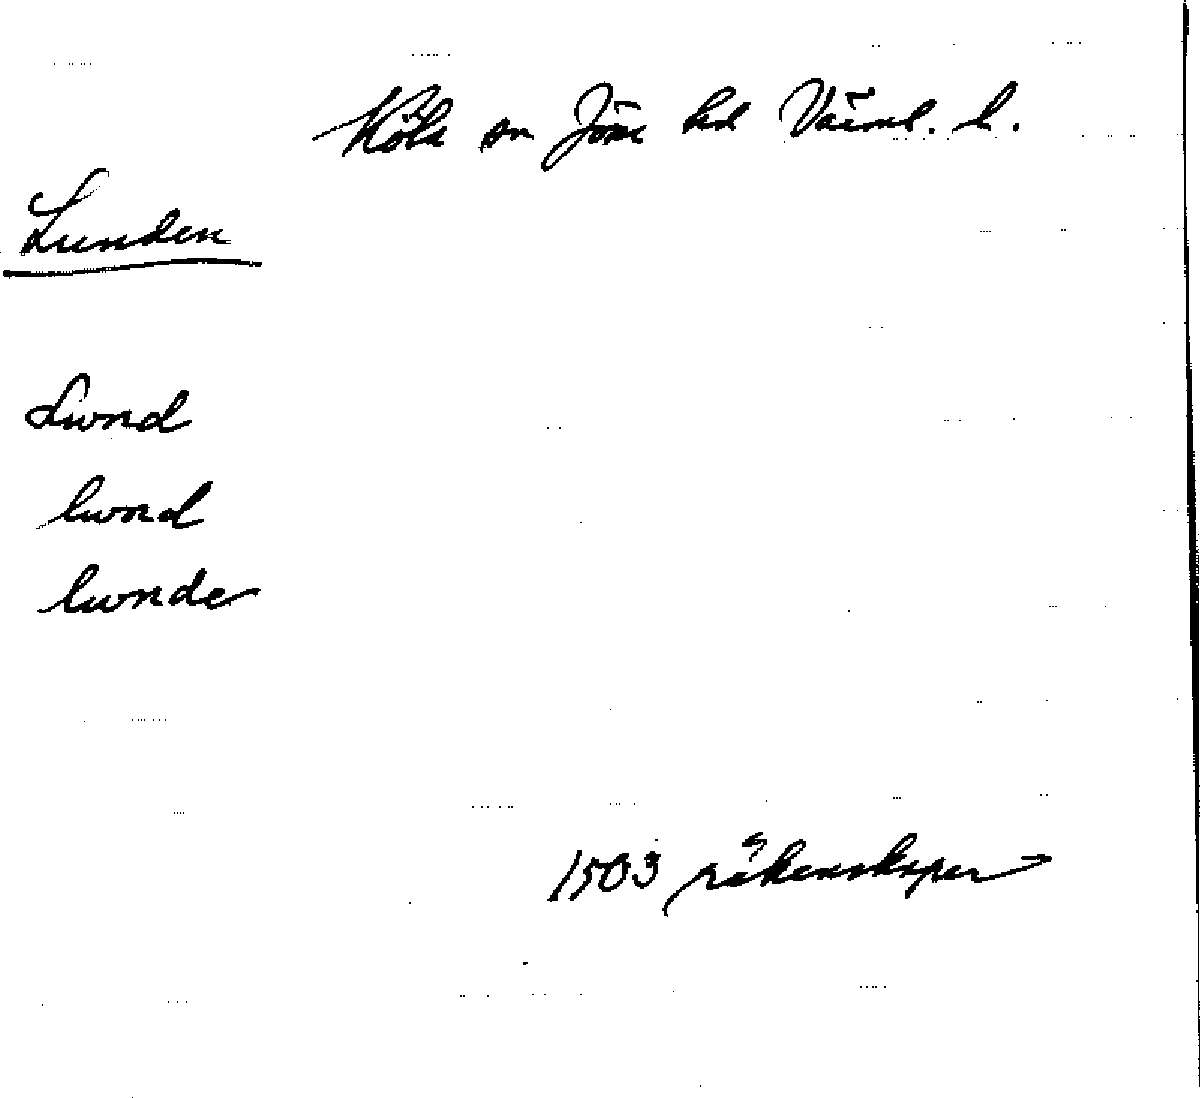 Köla sn Jösse hd Värml. l.
Lunden
Lwnd
lwnd
lwnde
1503 räkenskaper